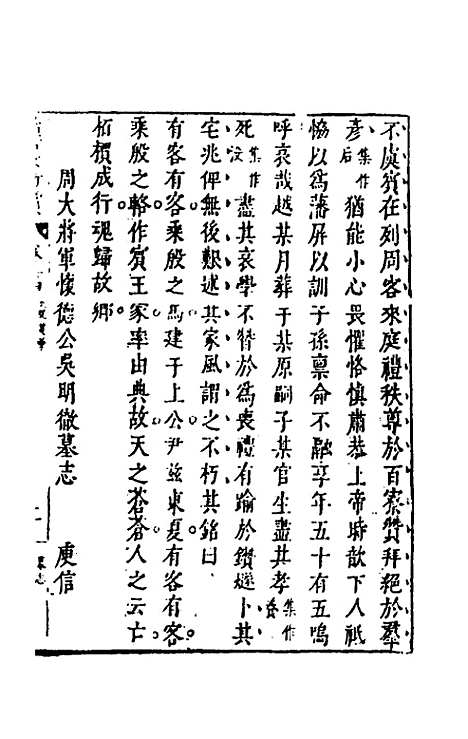 不虞賓在列周客來庭禮秩尊於百寮贊拜絕於羣
彥集作后猶能小心畏懼恪慎肅恭上帝時歆下人祗
恊以爲藩屏以訓子孫禀命不融享年五十有五嗚
呼哀哉越某月葬于某原嗣子某官生盡其孝集作養
死集作沒盡其哀學不替於爲喪禮有踰於鑽燧卜其
宅兆俾無後艱述其家風謂之不朽其銘曰
有客有客乘殷之馬建于上公尹兹東夏有客有客
乘殷之輅作賓王家率由典故天之蒼蒼人之云亡
栢櫬成行魂歸故鄉
周大將軍懷德公吳明徹墓志 庾信